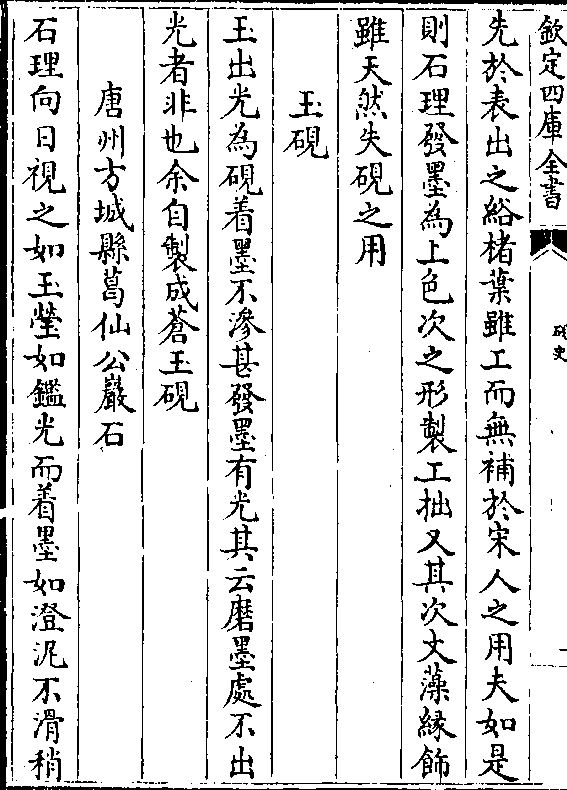 欽定四庫全書
硯史
一
先於表出之綌楮葉雖工而無補於宋人之用夫如是
則石理發墨為上色次之形製工拙又其次文藻緣飾
雖天然失硯之用
玉硯
玉出光為硯着墨不滲甚發墨有光其云磨墨處不出
光者非也余自製成蒼玉硯
唐州方城縣葛仙公巖石
石理向日視之如玉瑩如鑑光而着墨如澄泥不滑稍